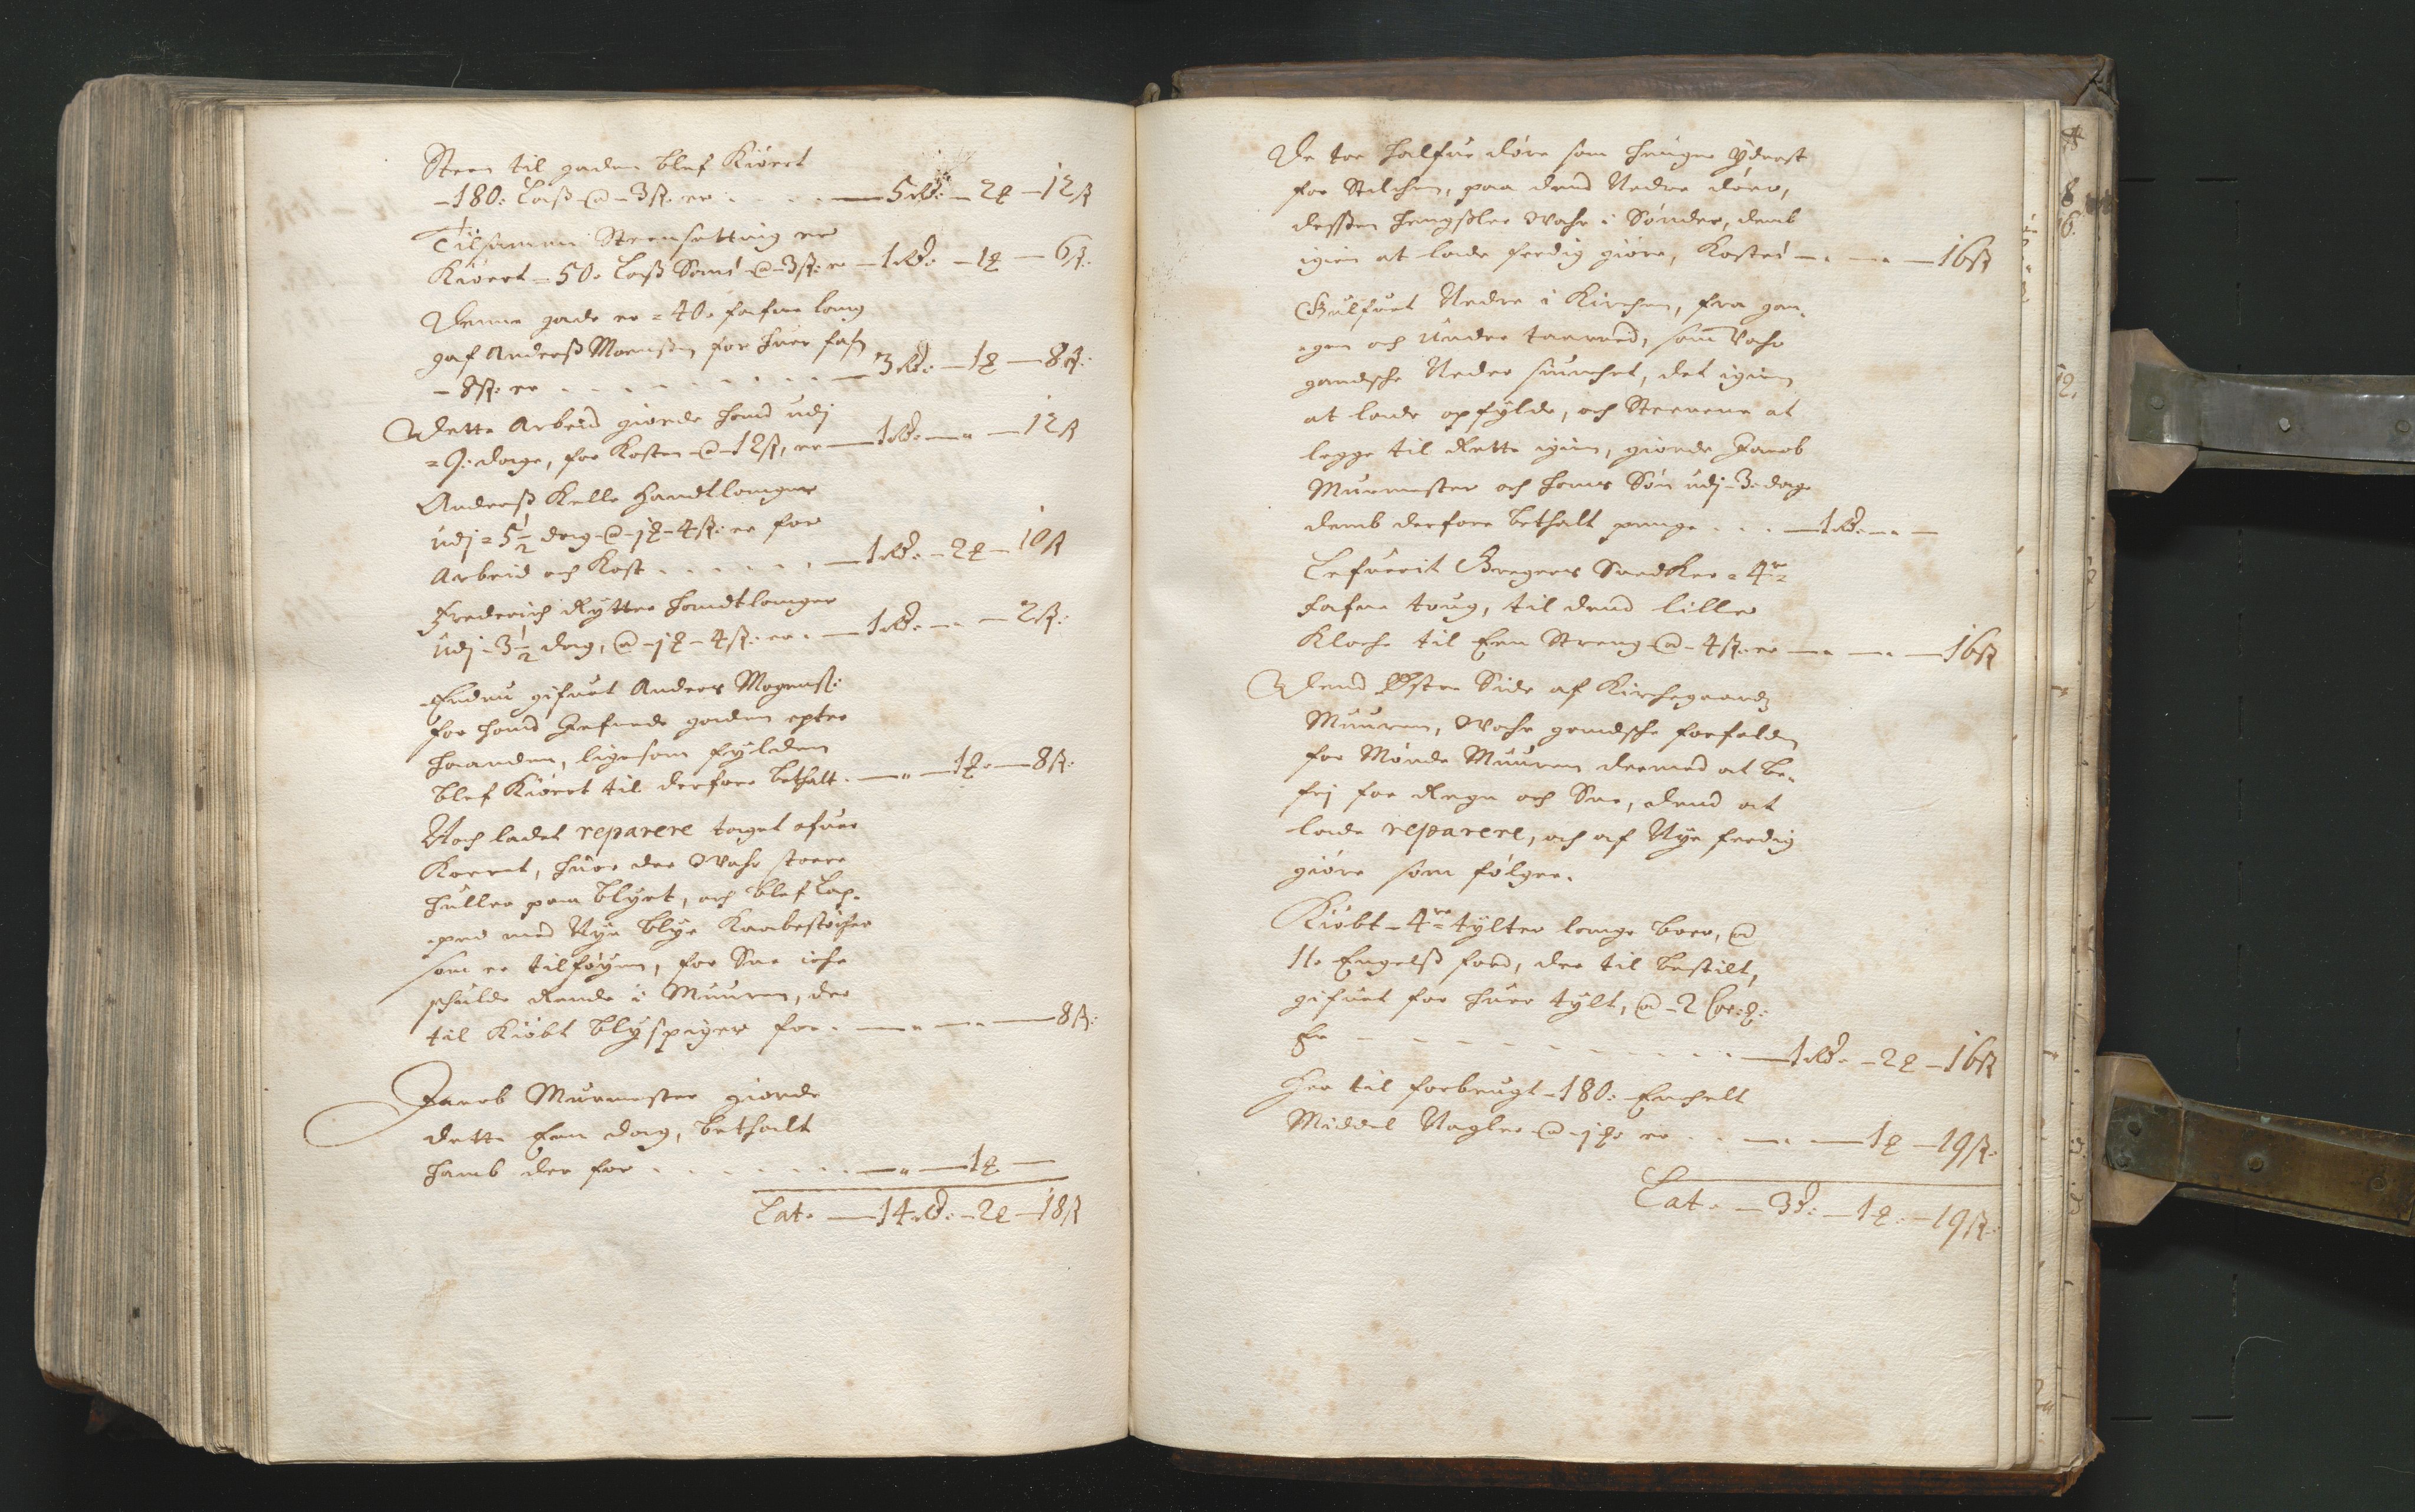 Steen til gaden blef Kiørt
– 180: Læß @ – 3 ß. er . . . . — 5 Rd: – 2 ₰ – 12 ß
Tilsamme Steensetting er
Kiørt – 50. Læß Sand @ – 3 ß: er — 1 Rd: – 1 ₰ — 6 ß:
Denne gade er = 40. fafne lang
gaf Anderß Monsøn for huer fafn
– 8 ß: er . . . . . . . . . — 3 Rd: – 1 ₰ — 8 ß:
Dette Arbeid giorde hand udj
= 9: dage, for Kosten @ – 12 ß, er — 1 Rd. — " — 12 ß
Anderß Kelle Handtlanger
udj = 5½ dag – @ – 1 ₰ – 4 ß: er for
Arbeid och Kost . . . . . . — 1 Rd. – 2 ₰ – 10 ß
Frederich Rytter Handtlanger
udj – 3½ dag, @ – 1 ₰ – 4 ß: er . — 1 Rd. — " — 2 ß:
Endnu gifuet Anders Mogenß:
for hand Jefnede gaden epter
haanden, ligesom fylden
blef Kiørt til derfore bethalt . — " — 1 ₰. — 8 ß:
Noch ladet reparere taget ofuer
Korret, huor der Wahr stoere
huller paa blyet, och blef lap-
ped med Nye blye Kaabestøcher
som er tilføyen, for Sne iche
schulde Rende i Muuren, der
til Kiøbt blyspiger for . — " — " — 8 ß:
Jacob Muurmester giorde
dette Een dag, bethalt
hamb der for . . . . . . . — " — 1 ₰ —
Lat. — 14 Rd: – 2 ₰ – 18 ß
De toe halfue døre som henger yderst
for Stilchen, paa dend Nedre døer,
deßsen hengßler Wahr i Sønder, demb
igien at lade ferdig giøre, Kosted — " — " — 16 ß
Gulfuet Nedre i Kirchen, fra gan-
gen och under taarned, som Vahr
gandsche Neder siunchet, det igien
at lade opfylde, och Steenene at
legge til Rette igien, giorde Jacob
Muurmester och hans Søn udj – 3: dage
demb derfore bethalt penge . . . — 1 Rd. — " —
Lefuerit Gregers Snedker = 4re
fafne toug, til dend lille
Kloche til Een Streng @ – 4 ß. er — " — " — 16 ß
Dend Østre Side af Kirchegaardz
Muuren, Wahr gandsche forfalden
for Mønde Muuren dermed at be-
frj for Regn och Sne, dend at
lade reparere, och af Nye ferdig
giøre som følger.
Kiøbt – 4re tylter lange boer, @
11. Engelß foed, der til bestilt,
gifuet for huer tylt, @ – 2 Cor. ₰:
Er . . . . . . . . . . . — 1 Rd. – 2 ₰ – 16 ß
Her til forbrugt – 180: Enchelt
Middel Nagler @ – 1 ₰. er . . — " — 1 ₰ – 19 ß:
Lat. – 3 d: – 1 ₰: – 19 ß: